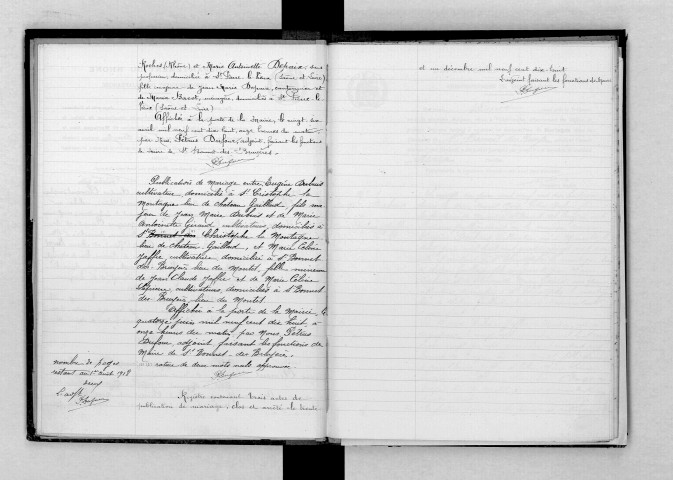 Roches (Rhône) et Marie Antoinette Depaix, sans
profession, domiciliée à St Igny le (Saône et Loire)
fille mineure de Jean Marie Depaix, et
de Marie Bacot, ménagère, domiciliés à St le
(Saône et Loire)
Affichée à la porte de la Mairie, le vingt
mil neuf cent dix huit, onze heures du matin
par Nous, Pétrus Dufour, adjoint, faisant les fonctions
de Maire de St Bonnet-des-Bruyères.
Publication de mariage entre Eugène Dubuis
cultivateur domicilié à St Cristophe la
Montagne lieu de chateau Gaillard, fils ma
jeur de Jean Marie Dubuis et de Marie
Antoinette Giraud cultivateurs domiciliés à
St Bonnet des Christophe la Montagne
lieu de chateau Gaillard, et Marie Céline
Jaffre cultivatrice domiciliée à St Bonnet
des Bruyères lieu du Montet, fille mineure
de Jean Claude Jaffre et de Marie Céline
cultivateurs, domiciliés à St Bonnet
des Bruyères lieu du Montet.
Affichée a la porte de la Mairie le
quatorze juin mil neuf cent dix huit, à
onze heures du matin par Nous Pétrus
Dufour, adjoint faisant les fonctions de
Maire de St Bonnet-des-Bruyères.
rature de deux mots nuls approuvée.
nombre de pages
restant au 1er avril 1918
deux
L'adjt
Registre contenant trois actes de
publication de mariage, clos et arrêté le trente
et un décembre mil neuf cent dix-huit
L'adjoint faisant les fonctions de Maire